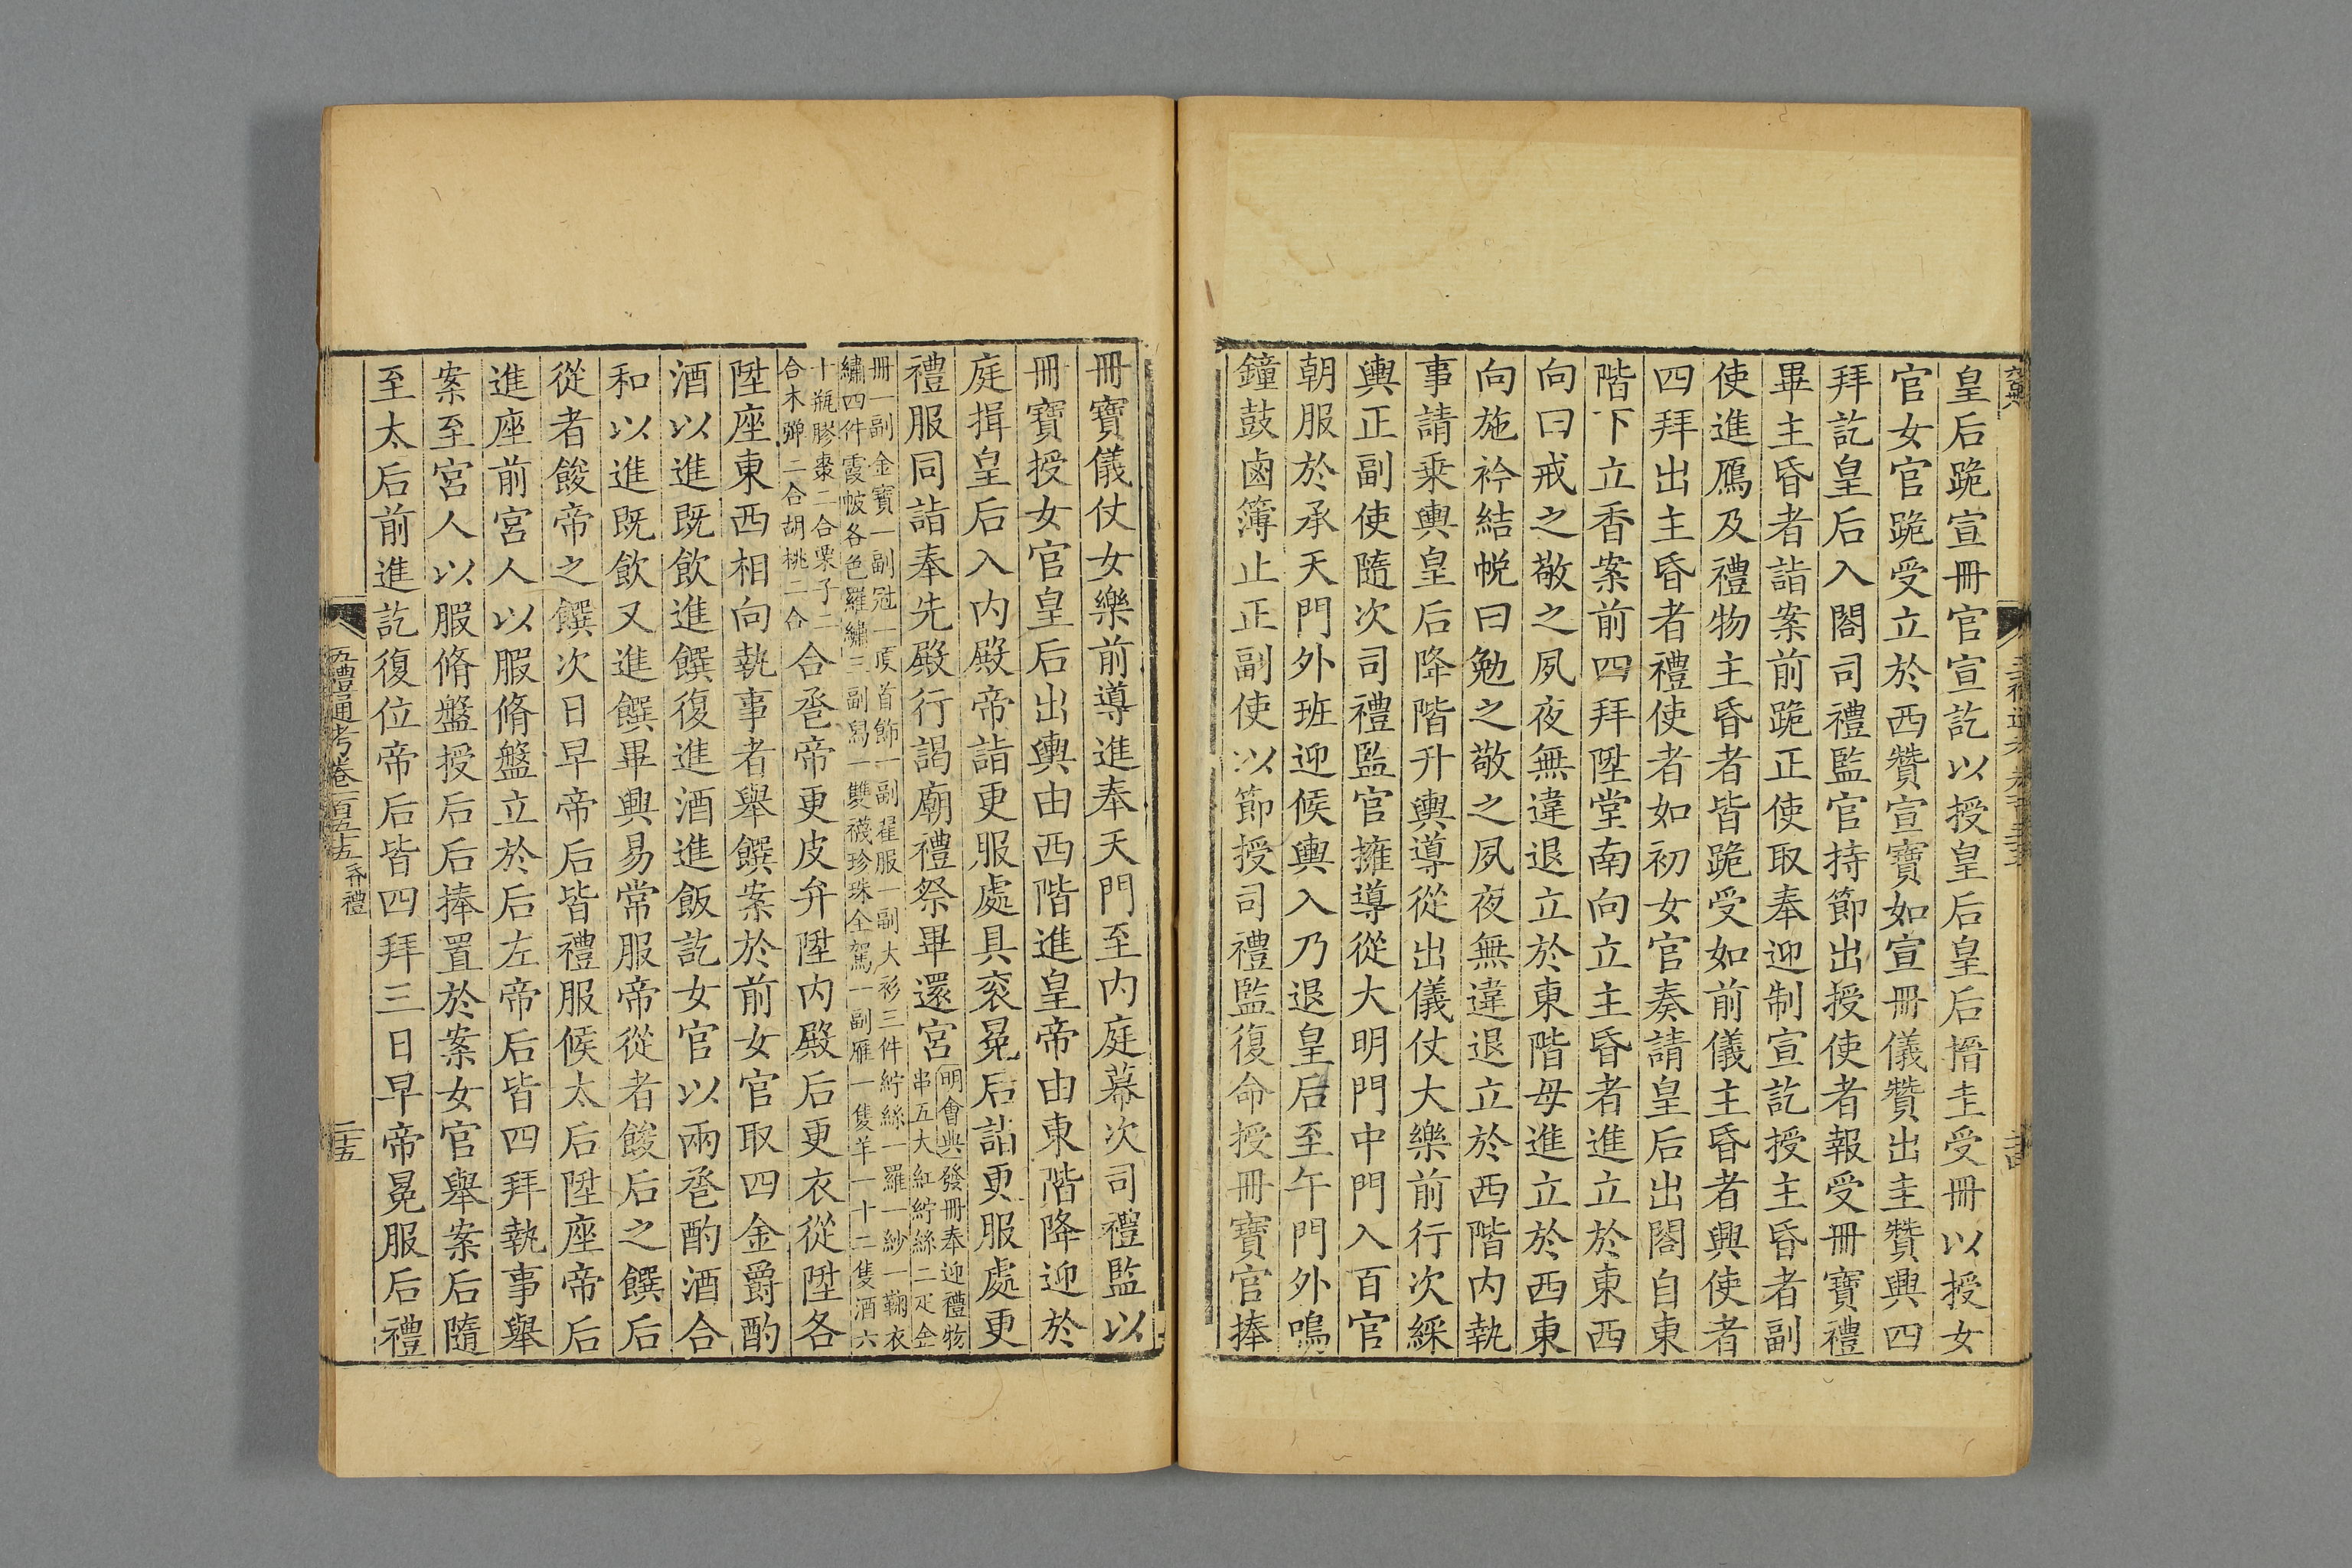 皇后跪宣冊官宣訖以授皇后皇后搢圭受冊以授女
官女官跪受立於西贊宣寶如宣冊儀贊出圭贊興四
拜訖皇后入閣司禮監官持節出授使者報受冊寶禮
畢主昏者詣案前跪正使取奉迎制宣訖授主昏者副
使進鴈及禮物主昏者皆跪受如前儀主昏者興使者
四拜出主昏者禮使者如初女官奏請皇后出閣自東
階下立香案前四拜陞堂南向立主昏者進立於東西
向曰戒之敬之夙夜無違退立於東階母進立於西東
向施衿結帨曰勉之敬之夙夜無違退立於西階內執
事請乗輿皇后降階升輿導從出儀仗大樂前行次綵
輿正副使隨次司禮監官擁導從大明門中門入百官
朝服於承天門外班迎候輿入乃退皇后至午門外鳴
鐘鼓鹵簿止正副使以節授司禮監復命授冊寶官捧
冊寶儀仗女樂前導進奉天門至內庭幕次司禮監以
冊寶授女官皇后出輿由西階進皇帝由東階降迎於
庭揖皇后入內殿帝詣更服處具衮冕后詣更服處更
禮服同詣奉先殿行謁廟禮祭畢還宮明會典發冊奉迎禮物
串五大紅紵絲二疋金
冊一副金寶一副冠一頂首飾一副翟服一副大衫三件紵絲一羅一紗一鞠衣
繡四件霞帔各色羅繡三副舄一雙襪珍珠全駕一副雁一隻羊一十二隻酒六
十瓶膠棗二合栗子二
合木彈二合胡桃二合
合巹帝更皮弁陞內殿后更衣從陞各
陞座東西相向執事者舉饌案於前女官取四金爵酌
酒以進既飲進饌復進酒進飯訖女官以兩巹酌酒合
和以進既飲又進饌畢興易常服帝從者餕后之饌后
從者餕帝之饌次日早帝后皆禮服候太后陞座帝后
進座前宮人以腶脩盤立於后左帝后皆四拜執事舉
案至宮人以腶脩盤授后后捧置於案女官舉案后隨
至太后前進訖復位帝后皆四拜三日早帝冕服后禮
五禮通考卷一百五十五 昏禮
二十五